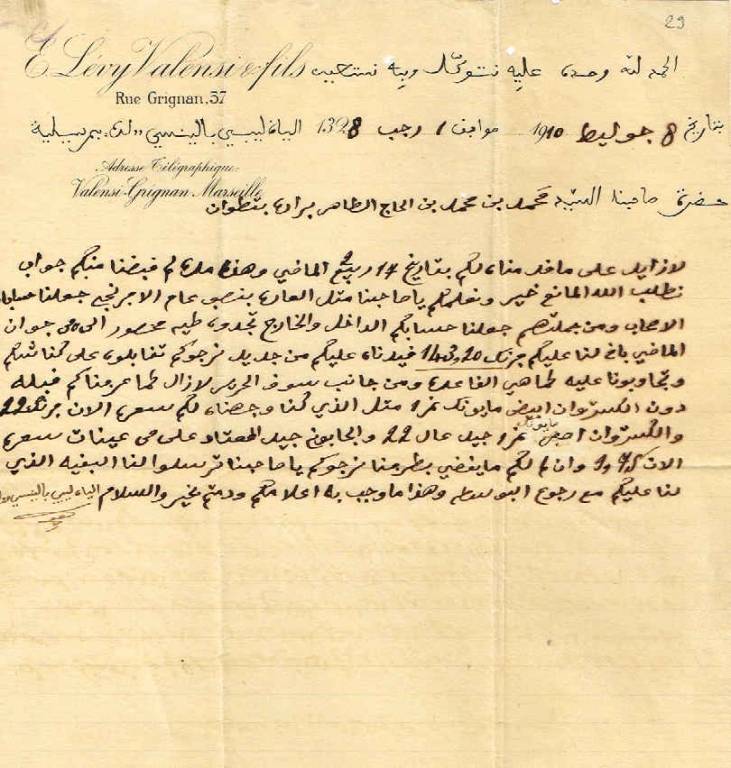 29
E. Lévy Valensi & fils
الحمد لله وحده عليه نتوكل وبه نستعين
Rue Grignan, 37
بتاريخ 8 جوليط 1910 موافق 1 رجب 1328
Adresse Télégraphique
Valensi-Grignan-Marseille
حضرة صاحبنا السيد محمد بن محمد بن الحاج الطاهر برادة بتطوان
لازايد على ما قد منا لكم بتاريخ 14 ربيع 2 الماضي وهذا مدة لم قبضنا منكم جواب
نطلب الله المانع خير ونعلمكم يا صاحبنا مثل العادة بنصو عام الافرنجي جعلنا حسابات
الاصحاب ومن جملتهم جعلنا حسابكم الداخل والخارج تجدوه طيه محصور الى جوان
الماضي باقي لنا عليكم فرنك 143,20 قيدناه عليكم من جديد نرجوكم تقابلوه على كناشكم
وتجاوبونا عليه كما هي القاعدة ومن جانب سوق الحرير لازال كما عرفناكم قبله
دون الكتروان ابيض مابونك نمر 1 مثل الذي كنا وجهناه لكم سعره الان فرنك 22
والكتروان اصفر مابونك نمر 1 جيل عال 22 والجابونو جيل المعتاد على عينات سعره
الان وان لكم ما يقضي بطرفنا نرجوكم يا صاحبنا ترسلوا لنا البقية الذي
لنا عليكم مع رجوع البوسطه وهذا ما وجب به اعلامكم ودمتم بخير والسلام